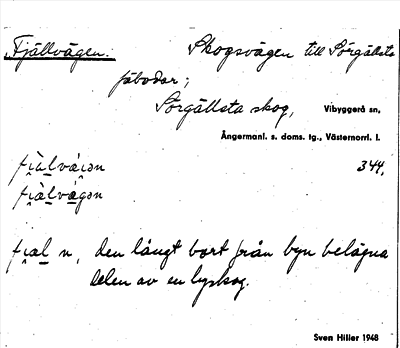 Fjällvägen. Skogsvägen till Sörgållsta
fäbodar;
Sörgållsta skog, Vibyggerå sn,
Ångermanl. s. doms. tg., Västernorrl. l.
344.
fjal n, den långt bort från byn belägna
delen av en byskog.
Sven Hiller 1948